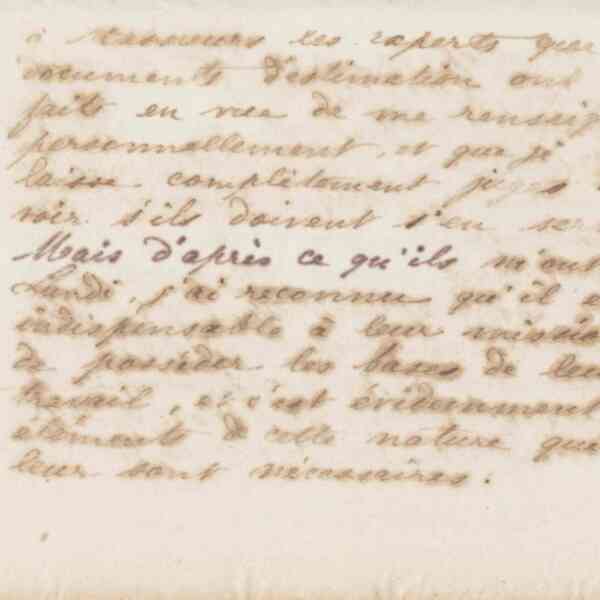 à Messieurs les experts que
documents d'estimation ont
faits en vue de me renseig
personnellement, et que je
laisse complètement juges
voir s'ils doivent s'en ser
Mais d'après ce qu'ils m'ont
Lundi, j'ai reconnu qu'il e
indispensable à leur mission
de posséder les bases de leu
travail, et c'est évidemment
éléments de cette nature qui
leur sont nécessaires.